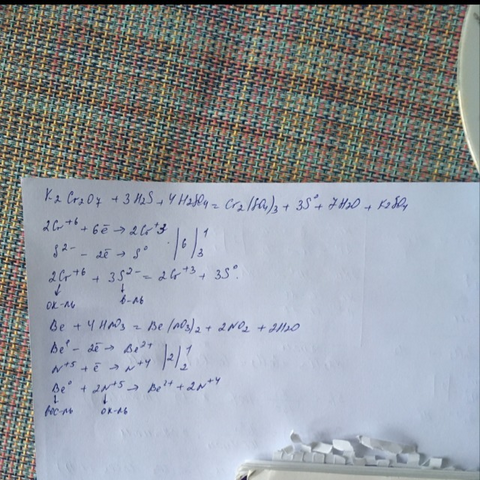 K2Cr2O7 + 3H2S + 4H2SO4 = Cr2(SO4)3 + 3S⁰ + 7H2O + K2SO4
2Cr⁺⁶ + 6ē → 2Cr⁺³ | 6 | 1
S²⁻ - 2ē → S⁰ | 3
2Cr⁺⁶ + 3S²⁻ = 2Cr⁺³ + 3S⁰.
↓ ↓
ок-ль в-ль
Be + 4HNO3 = Be(NO3)2 + 2NO2 + 2H2O
Be⁰ - 2ē → Be²⁺ | 2 | 1
N⁺⁵ + ē → N⁺⁴ | 2
Be⁰ + 2N⁺⁵ → Be²⁺ + 2N⁺⁴
↓ ↓
вос-ль ок-ль